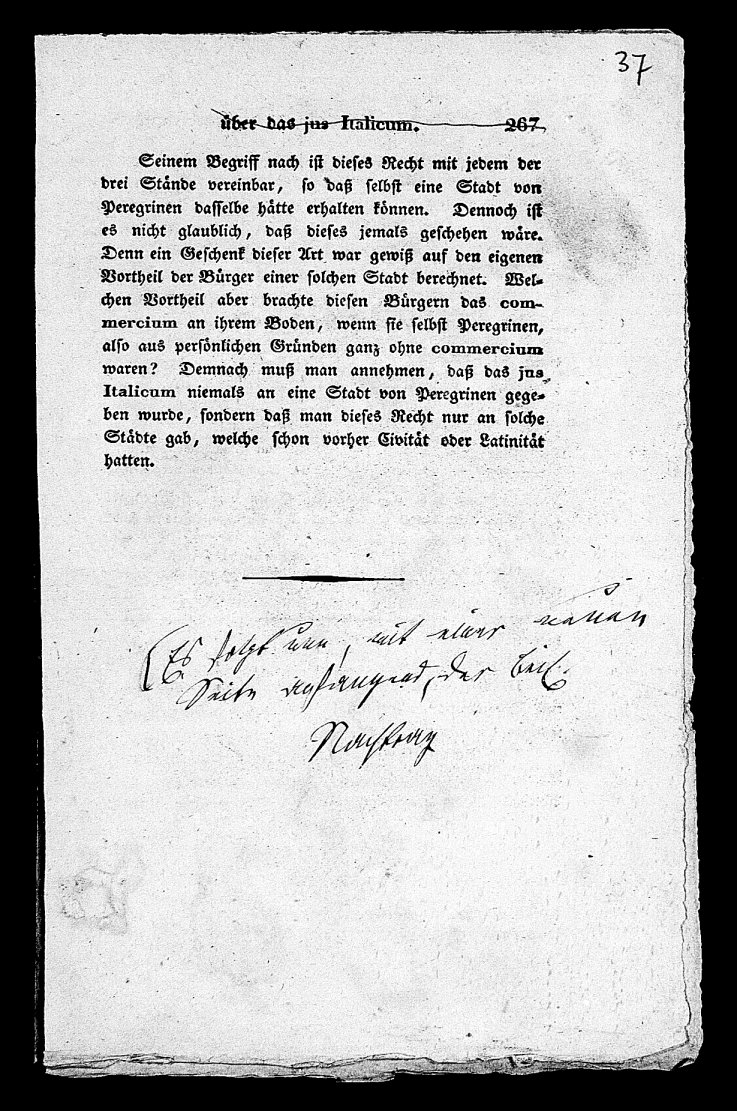 37
über das jus Italicum. 267
Seinem Begriff nach ist dieses Recht mit jedem der
drei Stände vereinbar, so daß selbst eine Stadt von
Peregrinen dasselbe hätte erhalten können. Dennoch ist
es nicht glaublich, daß dieses jemals geschehen wäre.
Denn ein Geschenk dieser Art war gewiß auf den eigenen
Vortheil der Bürger einer solchen Stadt berechnet. Wel-
chen Vortheil aber brachte diesen Bürgern das com-
mercium an ihrem Boden, wenn sie selbst Peregrinen,
also aus persönlichen Gründen ganz ohne commercium
waren? Demnach muß man annehmen, daß das jus
Italicum niemals an eine Stadt von Peregrinen gege-
ben wurde, sondern daß man dieses Recht nur an solche
Städte gab, welche schon vorher Civität oder Latinität
hatten.
(Es folgt nun, mit einer neuen
Seite anfangend, der beil.
Nachtrag